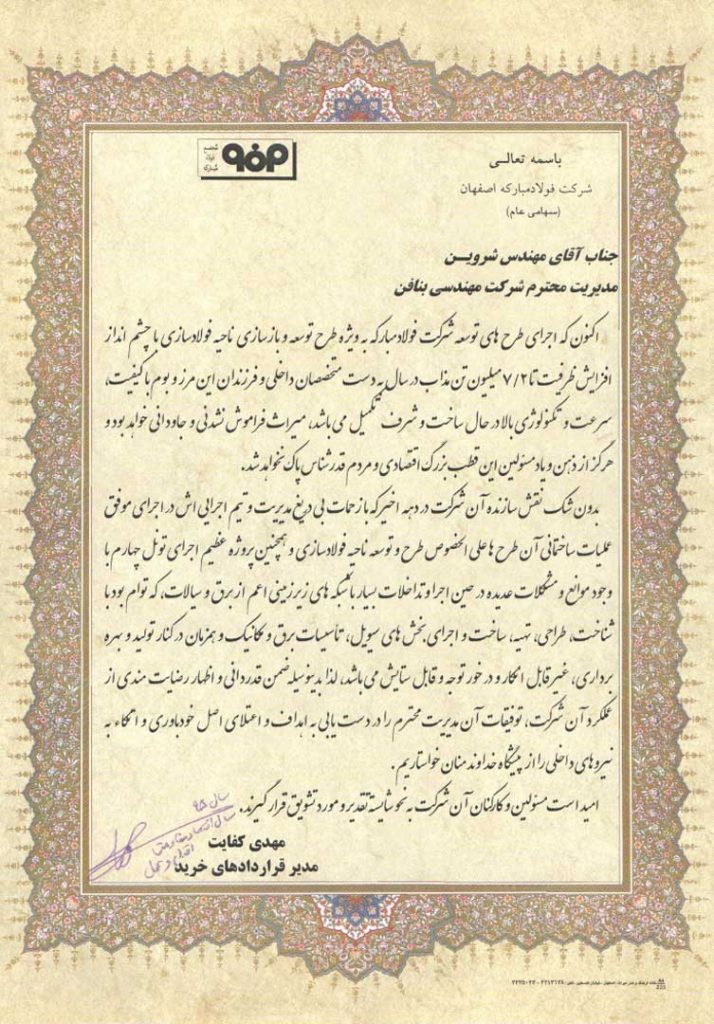 باسمه تعالی
شرکت فولادمبارکه اصفهان
(سهامی عام)
جناب آقای مهندس شرویـن
مدیریت محترم شرکت مهندسی بنافن
اکنون که اجرای طرح های توسعه شرکت فولادمبارکه به ویژه طرح توسعه و بازسازی ناحیه فولادسازی با چشم انداز
افزایش ظرفیت تا ۷/۲ میلیون تن مذاب در سال به دست متخصصان داخلی و فرزندان این مرز و بوم با کیفیت،
سرعت و تکنولوژی بالا در حال ساخت و شرف تکمیل می باشد، میراث فراموش نشدنی و جاودانی خواهد بود و
هرگز از ذهن و یاد مسئولین این قطب بزرگ اقتصادی و مردم قدرشناس پاک نخواهد شد.
بدون شک نقش سازنده آن شرکت در دهه اخیر که با زحمات بی دریغ مدیریت و تیم اجرایی اش در اجرای موفق
عملیات ساختمانی آن طرح ها علی الخصوص طرح و توسعه ناحیه فولادسازی و همچنین پروژه عظیم اجرای تونل چهارم با
وجود موانع و مشکلات عدیده در حین اجرا و تداخلات بسیار با شبکه های زیرزمینی اعم از برق و سیالات، که توام بود با
شناخت، طراحی، تهیه، ساخت و اجرای بخش های سیویل، تأسیسات برق و مکانیک و همزمان در کنار تولید و بهره
برداری، غیر قابل انکار و در خور توجه و قابل ستایش می باشد، لذا بدینوسیله ضمن قدردانی و اظهار رضایت مندی از
عملکرد آن شرکت، توفیقات آن مدیریت محترم را در دست یابی به اهداف و اعتلای اصل خودباوری و اتکاء به
نیروهای داخلی را از پیشگاه خداوند منان خواستاریم.
امید است مسئولین و کارکنان آن شرکت به نحو شایسته تقدیر و مورد تشویق قرار گیرند.
سال ۹۵
سال اقتصاد مقاومتی
اقدام و عمل
مهدی کفایت
مدیر قراردادهای خرید